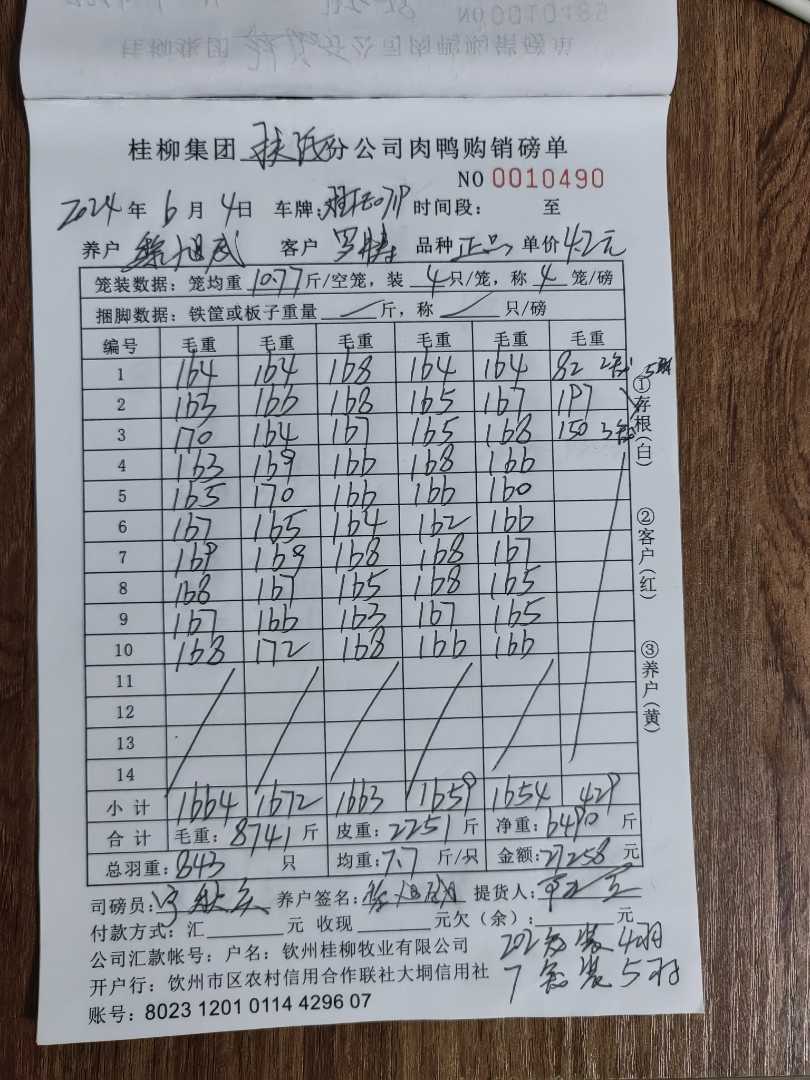 桂柳集团 分公司肉鸭购销磅单
NO 0010490
2024 年 6 月 4 日 车牌: 时间段: 至
养户 旭 客户 罗 品种 正品 单价 4.2元
笼装数据: 笼均重 10.77 斤/空笼, 装 4 只/笼, 称 4 笼/磅
捆脚数据: 铁筐或板子重量 / 斤, 称 / 只/磅
编号 毛重 毛重 毛重 毛重 毛重 毛重
1 164 164 168 164 164 82 2 5
2 163 166 168 165 167 197
3 170 164 167 165 168 150 3
4 163 169 166 168 166
5 165 170 166 166 160
6 167 165 164 162 166
7 169 169 168 168 167
8 168 167 165 168 165
9 167 166 163 167 165
10 168 172 168 166 166
11
12
13
14
小计 1664 1672 1663 1659 1654 429
合计 毛重: 8741 斤 皮重: 2251 斤 净重: 6490 斤
总羽重: 843 只 均重: 7.7 斤/只 金额: 27258 元
司磅员: 养户签名: 提货人:
付款方式: 汇 元 收现 元欠(余): 元
202 装 4羽
公司汇款帐号: 户名: 钦州桂柳牧业有限公司
7 装 5羽
开户行: 钦州市区农村信用合作联社大垌信用社
账号: 8023 1201 0114 4296 07
①存根(白)
②客户(红)
③养户(黄)